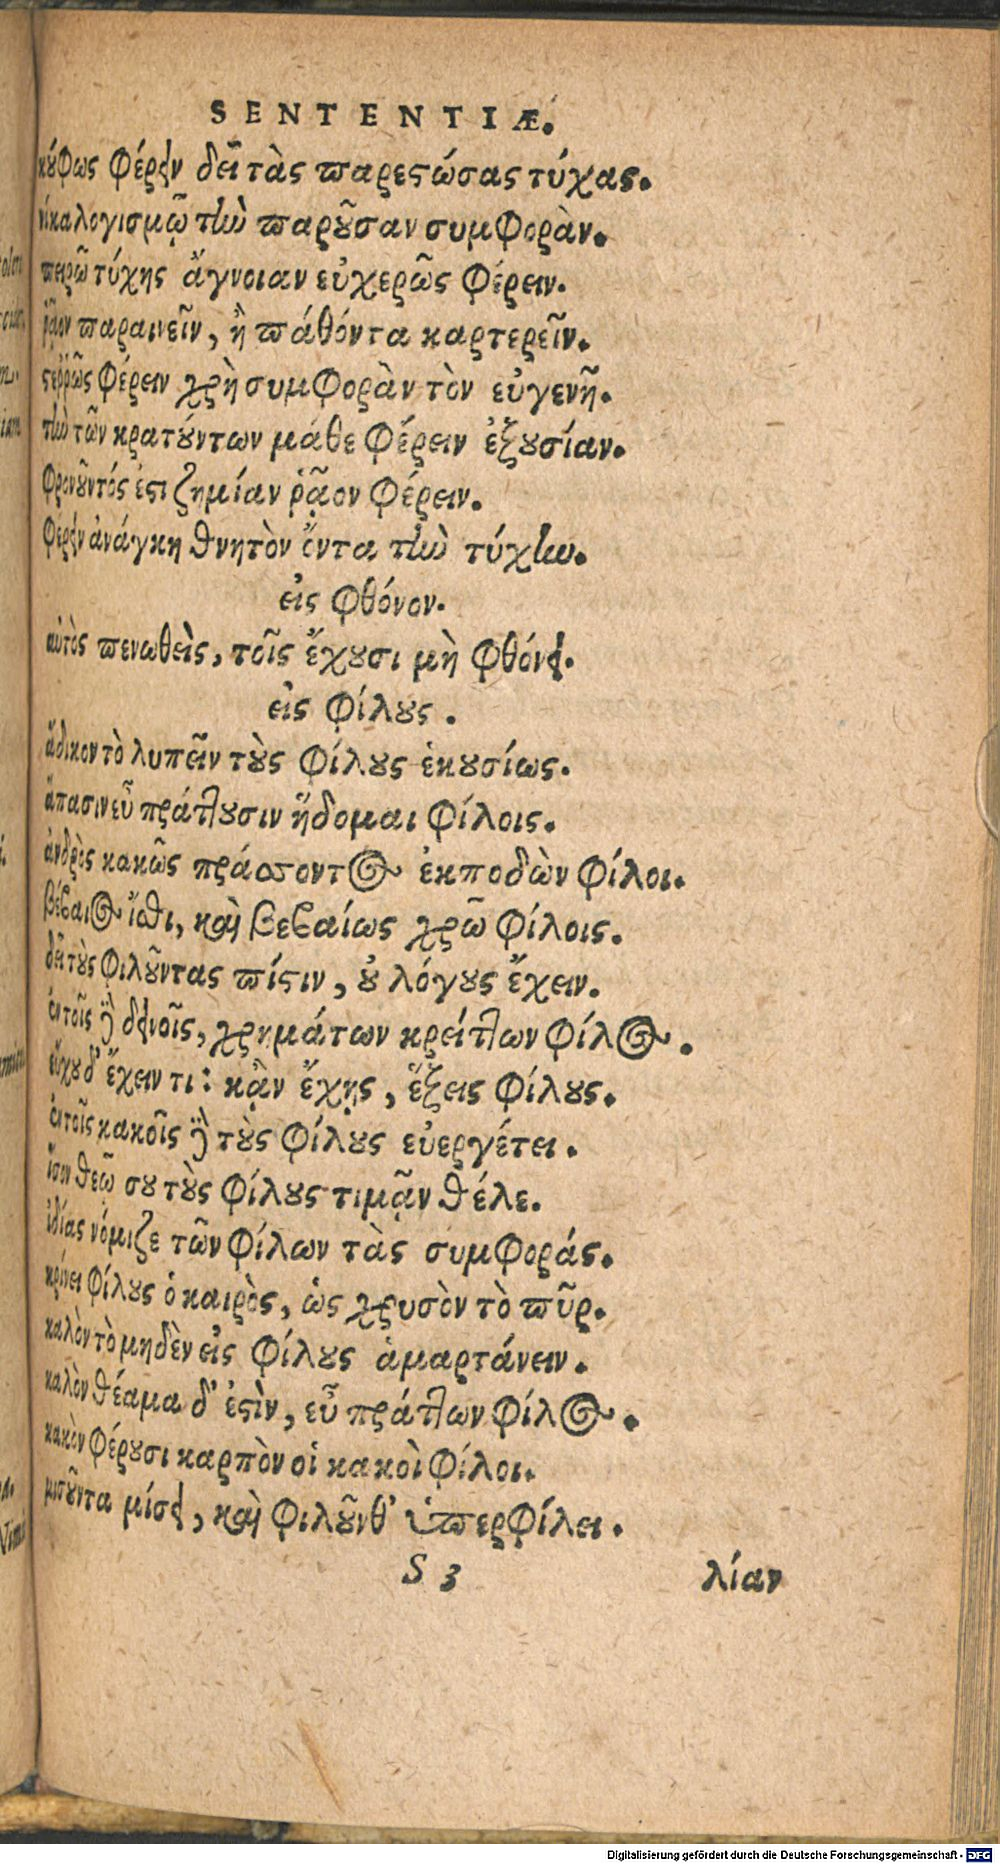 SENTENTIÆ.
κούφως φέρειν δεῖ τὰς παρεστώσας τύχας.
νίκα λογισμῷ τὴν παροῦσαν συμφορὰν.
πειρῶ τύχης ἄγνοιαν εὐχερῶς φέρειν.
ῥᾷον παραινεῖν, ἢ πάθόντα καρτερεῖν.
στερρῶς φέρειν χρὴ συμφορὰν τὸν εὐγενῆ.
τὴν τῶν κρατούντων μάθε φέρειν ἐξουσίαν.
φρονοῦντός ἐστι ζημίαν ῥᾷον φέρειν.
φερειν ἀνάγκη θνητὸν ὄντα τὴν τύχην.
εἰς φθόνον.
αὐτὸς πενωθεὶς, τοῖς ἔχουσι μὴ φθόνει.
εἰς φίλους.
ἄδικον τὸ λυπεῖν τοὺς φίλους ἑκουσίως.
ἅπασιν εὖ πράττουσιν ἥδομαι φίλοις.
ἀνδρὸς κακῶς πράσσοντος ἐκποδὼν φίλοι.
βέβαιος ἴσθι, καὶ βεβαίως χρῶ φίλοις.
δεῖ τοὺς φιλοῦντας πίστιν, οὐ λόγους ἔχειν.
ἐν τοῖς δὲ δεινοῖς, χρημάτων κρείττων φίλος.
εὔχου δ' ἔχειν τι: κᾂν ἔχῃς, ἕξεις φίλους.
ἐν τοῖς κακοῖς δὲ τοὺς φίλους εὐεργέτει.
ἴσον θεῷ σου τοὺς φίλους τιμᾷν θέλε.
ἰδίας νόμιζε τῶν φίλων τὰς συμφοράς.
κρίνει φίλους ὁ καιρὸς, ὡς χρυσὸν τὸ πῦρ.
καλὸν τὸ μηδὲν εἰς φίλους ἁμαρτάνειν.
καλὸν θέαμα δ' ἐστὶν, εὖ πράττων φίλος.
κακὸν φέρουσι καρπὸν οἱ κακοὶ φίλοι.
μισοῦντα μίσει, καὶ φιλοῦνθ' ὑπερφίλει.
S 3 λίαν
Digitalisierung gefördert durch die Deutsche Forschungsgemeinschaft - DFG